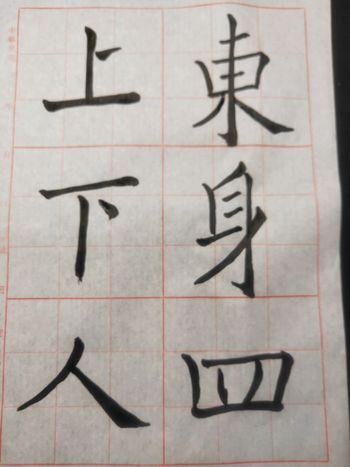 東身四
上下人